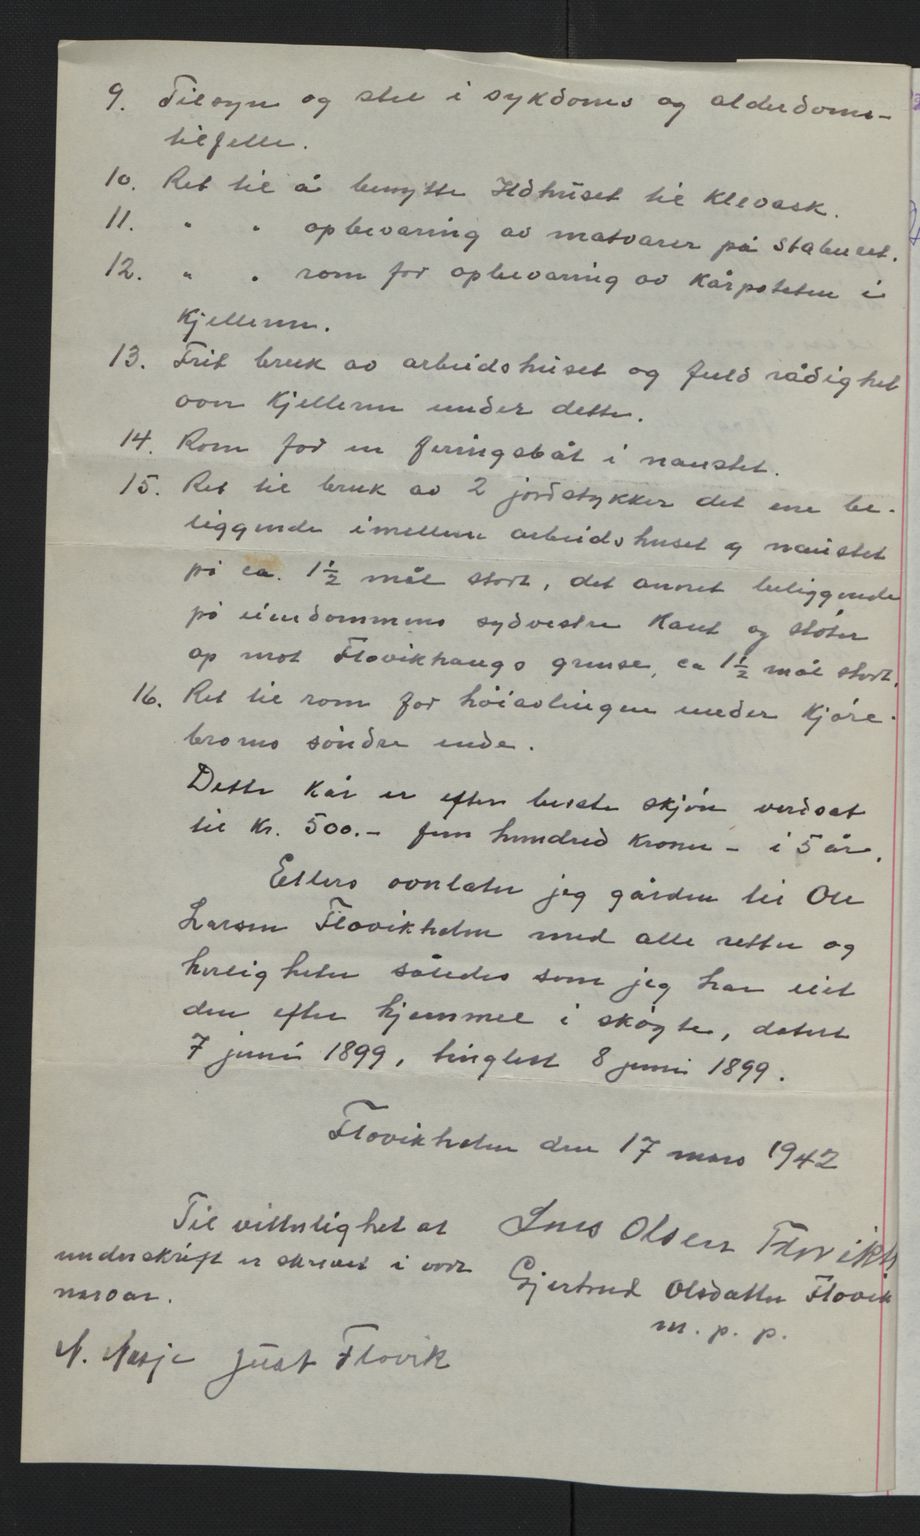 9. Tilsyn og stel i sykdoms og alderdoms-
tilfelle.
10. Ret til å benytte Ildhuset til klevask.
11. " " opbevaring av matvarer på stabburet.
12. " " rom for opbevaring av kårpoteten i
kjelleren.
13. Frit bruk av arbeidshuset og fuld rådighet
over kjelleren under dette.
14. Rom for en færingsbåt i naustet.
15. Ret til bruk av 2 jordstykker det ene be-
liggende imellem arbeidshuset og naustet
på ca. 1½ mål stort, det annet beliggende
på eiendommens sydvestre kant og støter
op mot Flovikhaugs grense, ca 1½ mål stort.
16. Ret til rom for høiavlingen under kjøre-
broens søndre ende.
Dette kår er efter beste skjøn verdsat
til kr. 500.- fem hundred kroner - i 5 år.
Ellers overlater jeg gården til Ole
Larsen Flovikholm med alle retter og
herligheter således som jeg har eiet
den efter hjemmel i skøyte, datert
7 juni 1899, tinglest 8 juni 1899.
Flovikholm den 17 mars 1942
Til vitterlighet at
underskrift er skrevet i vort
nærvær.
Lars Olsen Flovikh
Gjertrud Olsdatter Flovik
m. p. p.
N. Nesje Just Flovik